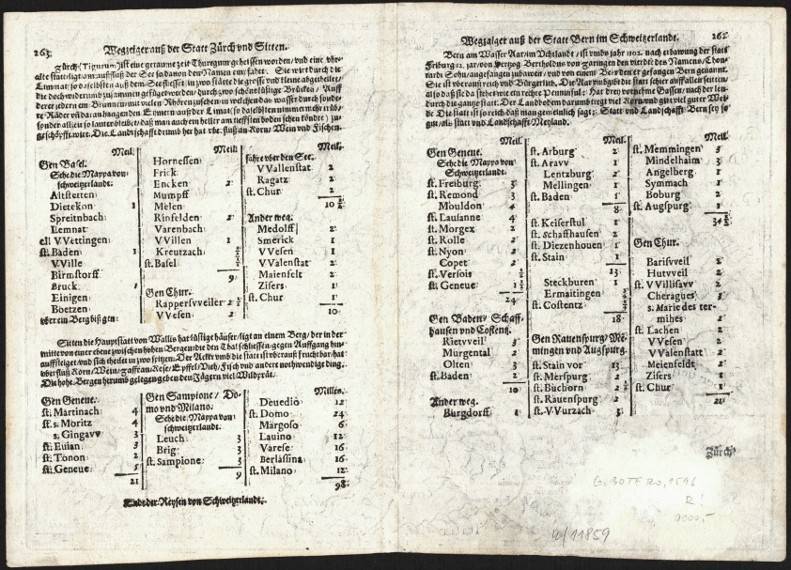 263.
Wegzeiger auß der Statt Zürch vnd Sitten.
Zürch (Tigurum) ist eine geraume zeit Thuregum geheissen worden, vnd eine vhr-
alte statt, ligt am außfluß der See so da von den Namen empfahet. Sie wirt durch die
Limmat so daselbsten auß dem See fliesset, in zwo Stätte die grosse vnd kleine abgetheilet,
die doch widerumb zusammen gefüget werden, durch zwo schöne lüstige Brücken. Auff
derer jedern ein Brunnen mit vielen Rhören zusehen, in welchen das wasser durch sonde-
re Räder vnd daran hangenden Eymern auß der Limat, so daselbsten nimmermehr trüb,
sonder allzeit so lauter bleibet, daß man auch ein heller am tieffsten boden sehen köndte) ge-
Die Landschafft drumb her hat vberfluß an Korn, Wein vnd Fischen.
Meil.
Gen Basel.
Sehe die Mappa von
schweitzerlandt.
Altstetten
Dietekon 1
Spreitnbach
Lemnat
ell VVettingen
st. Baden 1
VVille
Birmstorff
Bruck 1
Einigen
Boetzen
vber ein Berg bißgen
Meil.
Hornessen
Frick
Encken 2
Mumpff
Melen
Rinfelden 2
Varenbach
VVillen 1
Kreutzach
st. Basel
9
Gen Chur.
Rappersvveiler
VVesen 2
Meil.
fahre vber den See.
VVallenstat 2
Ragatz 2
st. Chur 2
10 ½
Ander weg.
Medolff 2
Smerick 1
VVesen 1
VValenstat 2
Maienfelt 2
Zisers 1
st. Chur 1
10
Sitten die Hauptstatt von Wallis hat lüstige häuser, ligt an einem Berg, der in der
mitte von einer ebene zwischen hohen Bergen die den Thal schliessen, gegen Auffgang hin-
auffsteiget, vnd sich theilet in zwo spitzen. Der Acker vmb die statt ist vberauß fruchtbar, hat
vberfluß Korn, Wein, Saffran, Kese, Epffel, Vich, Fisch vnd andere nothwendige ding.
Die hohe Bergen herumb gelegen geben den Jägern viel Wildprät.
Gen Geneue.
st. Martinach 4
st. s. Moritz 4
s. Gingavv 3
st. Euian 3
st. Tonon 2
st. Geneue 5
21
Gen Sampione, Do-
mo vnd Milano.
Sehe die Mappa von
schweitzerlandt.
Leuch 3
Brig 3
st. Sampione 3
9
Millen.
Deuedio 12
st. Domo 24
Margoso 6
Lauino 12
Varese 16
Berlassina 16
st. Milano 12
98
Ende der Reysen von Schweitzerlandt.
Wegzaiger auß der Statt Bern im Schweitzerlandt. 262.
Bern am Wasser Aar, im Vchtlandt, ist vmbs jahr 1102. nach erbawung der statt
Friburg 12. jar, von Hertzog Bertholdus von Zäringen den vierdten des Namens, Chon-
rardi Sohn, angefangen zubawen, vnd von einem Beer den er gefangen Bern genannt.
Sie ist vberauß reich vnd Bürgerlich. Die Aar vmbgibt die statt schier auff allen seiten,
also daß sie da stehet wie ein rechte Peninsul: Hat drey vornehme Gassen, nach der len-
durch die gantze statt. Der Landboden darumb tregt viel Korn vnd gibt viel guter Wei-
de. Die statt ist so reich daß man gemeinlich sagt: Statt vnd Landschafft Bern sey so
gut, als statt vnd Landschafft Meyland.
Meil.
Gen Geneue.
Sehe die Mappa von
Schweitzerlandt.
st. Freiburg 3
st. Remond 3
Mouldon 4
st. Lausanne 4
st. Morgex 2
st. Rolle 2
st. Nyon 2
Copet 2
st. Versois ½
st. Geneue 1 ½
24
Gen Baden, Schaff-
hausen vnd Costentz.
Rietvveil 3
Murgental 2
Olten 3
st. Baden 2
10
Ander weg.
Burgdorff 1
Meil.
st. Arburg 2
st. Aravv 1
Lentzburg 2
Mellingen 1
st. Baden 1
8
st. Keiserstul 1
st. Schaffhausen 2
st. Diezenhouen 1
st. Stain 1
13
Steckburen 1
Ermaitingen
st. Costentz
18
Gen Rauenspurg, Me-
mingen vnd Augspurg.
st. Stain vor 13
st. Merspurg 2
st. Buchorn 2
st. Rauenspurg 2
st. VVurzach 3
Meil.
st. Memmingen 3
Mindelhaim 3
Angelberg 1
Symmach 1
Boburg 2
st. Augspurg 1
34 ½
Gen Chur.
Barisvveil 2
Hutvveil 2
st. VVillisavv 2
Cheragues 3
s. Marie des ter-
mihes 2
st. Lachen 2
VVesen 2
VVallenstatt 2
Meienfeldt 2
Zisers 1
st. Chur 1
21
Zürch
G. BOTERO, 1596
W/11859